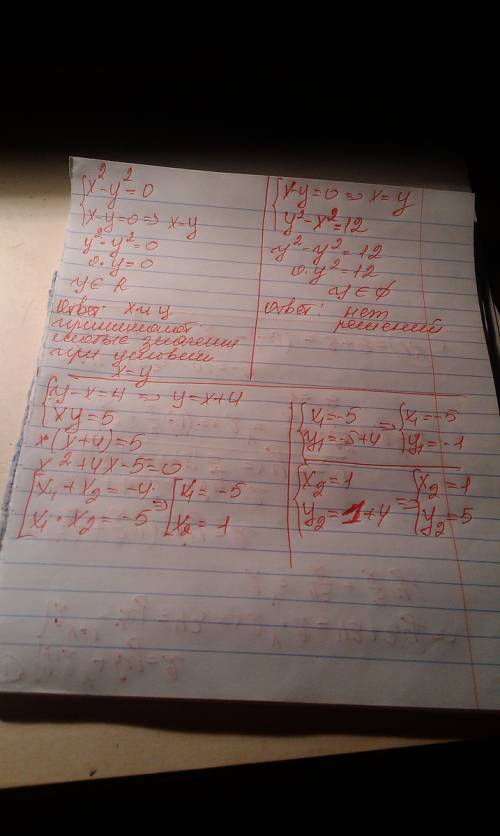 {x²-y²=0
{x-y=0 => x=y
y²-y²=0
0·y=0
y∈R
Ответ: x и y
принимают
любые значения
при условии
x=y
{x-y=0 => x=y
{y²-x²=12
y²-y²=12
0·y²=12
y∈∅
Ответ: нет
решений
{y-x=4 => y=x+4
{xy=5
x(x+4)=5
x²+4x-5=0
[x₁+x₂=-4 => [x₁=-5
[x₁·x₂=-5 [x₂=1
{x₁=-5 => {x₁=-5
{y₁=-5+4 {y₁=-1
{x₂=1 => {x₂=1
{y₂=1+4 {y₂=5